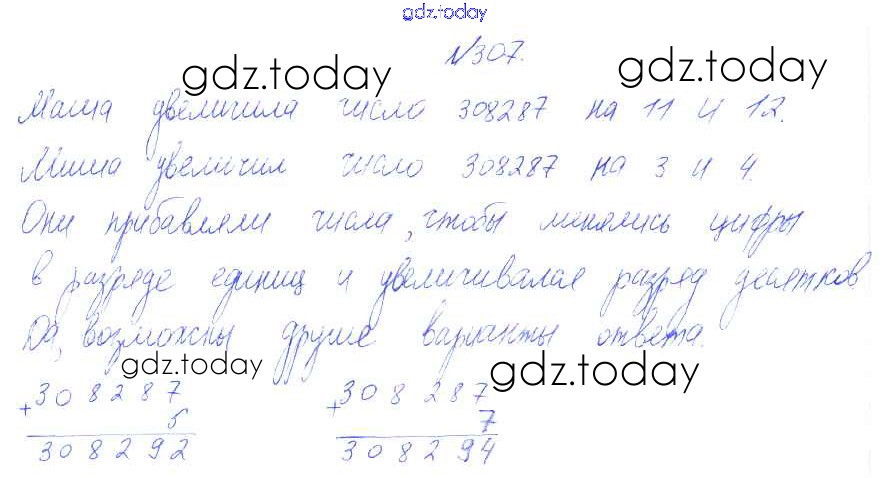 gdz.today
№307.
gdz.today gdz.today
Маша увеличила число 308287 на 11 и 12.
Миша увеличил число 308287 на 3 и 4.
Они прибавляли числа, чтобы менялись цифры
в разряде единиц и увеличивался разряд десятков
Да, возможны другие варианты ответа.
gdz.today gdz.today
308287 308287
+ 5 + 7
308292 308294